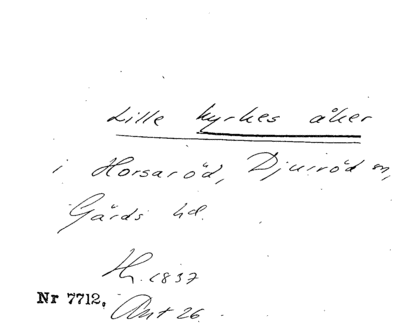 Lille kyrkes åker
i Horsaröd, Djurröd sn,
Gärds hd.
H. 1837
Nr 7712, Akt 26.